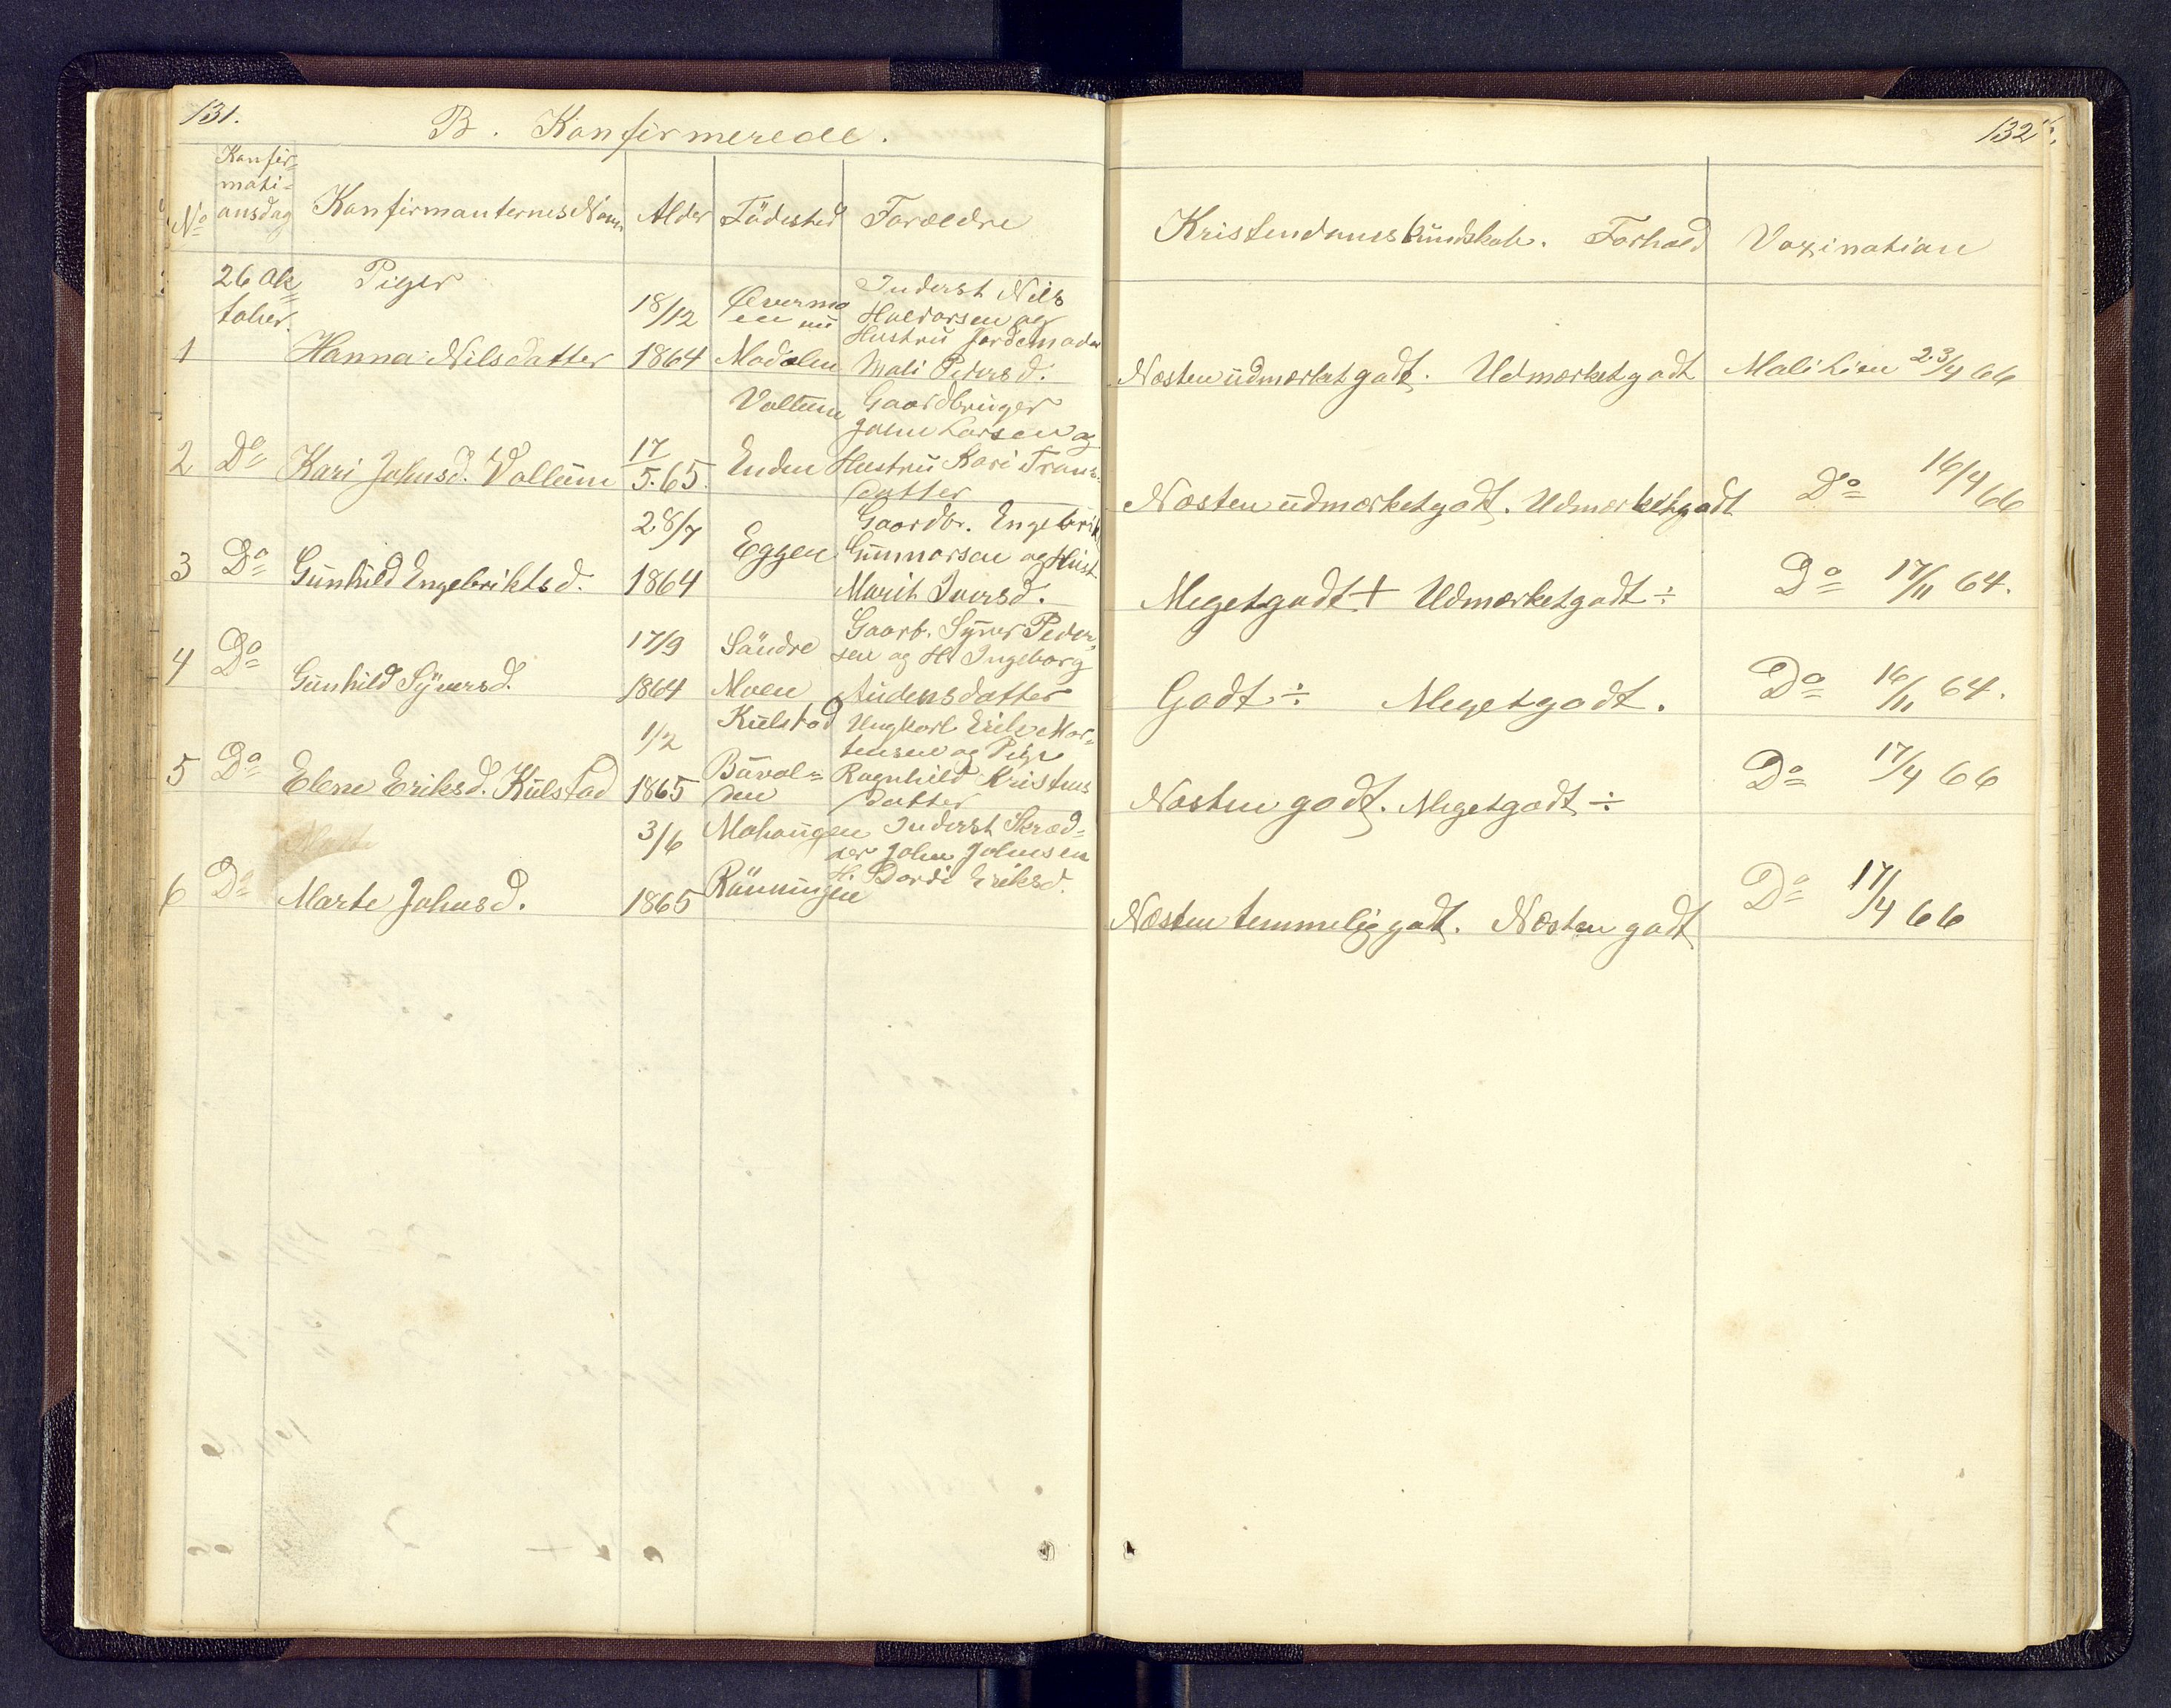 131.
B. Konfirmerede.
No
Konfir-
mati-
onsdag
Konfirmanternes Navn
Alder
Födested
Foræeldre
26 Ok-
tober.
Piger
1
Hanna Nilsdatter
18/12
1864
Madolen
Inderst Nils
Haldorsen og
Hustru Jordemoder
Mali Pedersd.
2
Do
Kari Johnsd. Vollum
17
5.65.
Vollum
Enden
Gaardbruger
John Larsen og
Hustru Kari Trons-
datter
3
Do
Gunhild Engebriktsd.
28/7
1864
Eggen
Gaardbr. Engebrikt
Gunnarsen og Hust
Marit Iversd.
4
Do
Gunhild Syversd.
17/9
1864
Söndre
Moen
Gaarb. Syver Peder-
sen og H. Ingeborg
Audensdatter
5
Do
Elene Eriksd. Kulstad
1/2
1865
Kulstad
Buvol-
den
Ungkarl Erik Mor-
tensen og Pige
Ragnhild Kristens
datter
Marte
6
Do
Marte Johnsd.
3/6
1865
Mohaugen
Rönningen
Inderst Skræd-
der John Johnsen
H. Bardi Eriksd.
132
Kristendomskundskab. Forhold
Vaxination
Næsten udmærket godt. Udmærket godt
Mali Lien 23/4 66
Næsten udmærket godt. Udmærket godt
Do 16/4 66
Meget godt + Udmærket godt ÷
Do 17/11 64.
Godt ÷ Meget godt.
Do 16/11 64.
Næsten godt. Meget godt ÷
Do 17/4 66
Næsten temmelig godt. Næsten godt
Do 17/4 66